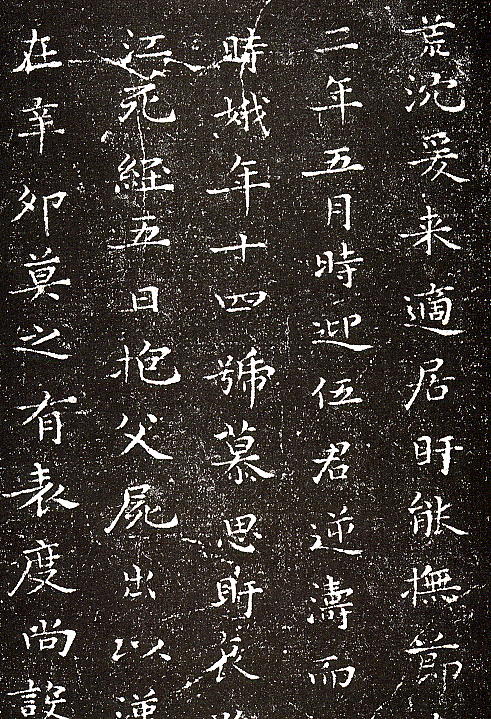 荒沈爰来適居盱能撫節
二年五月時迎伍君逆濤而
時娥年十四號慕思盱哀
江死經五日抱父屍出以漢
在辛卯莫之有表度尚設